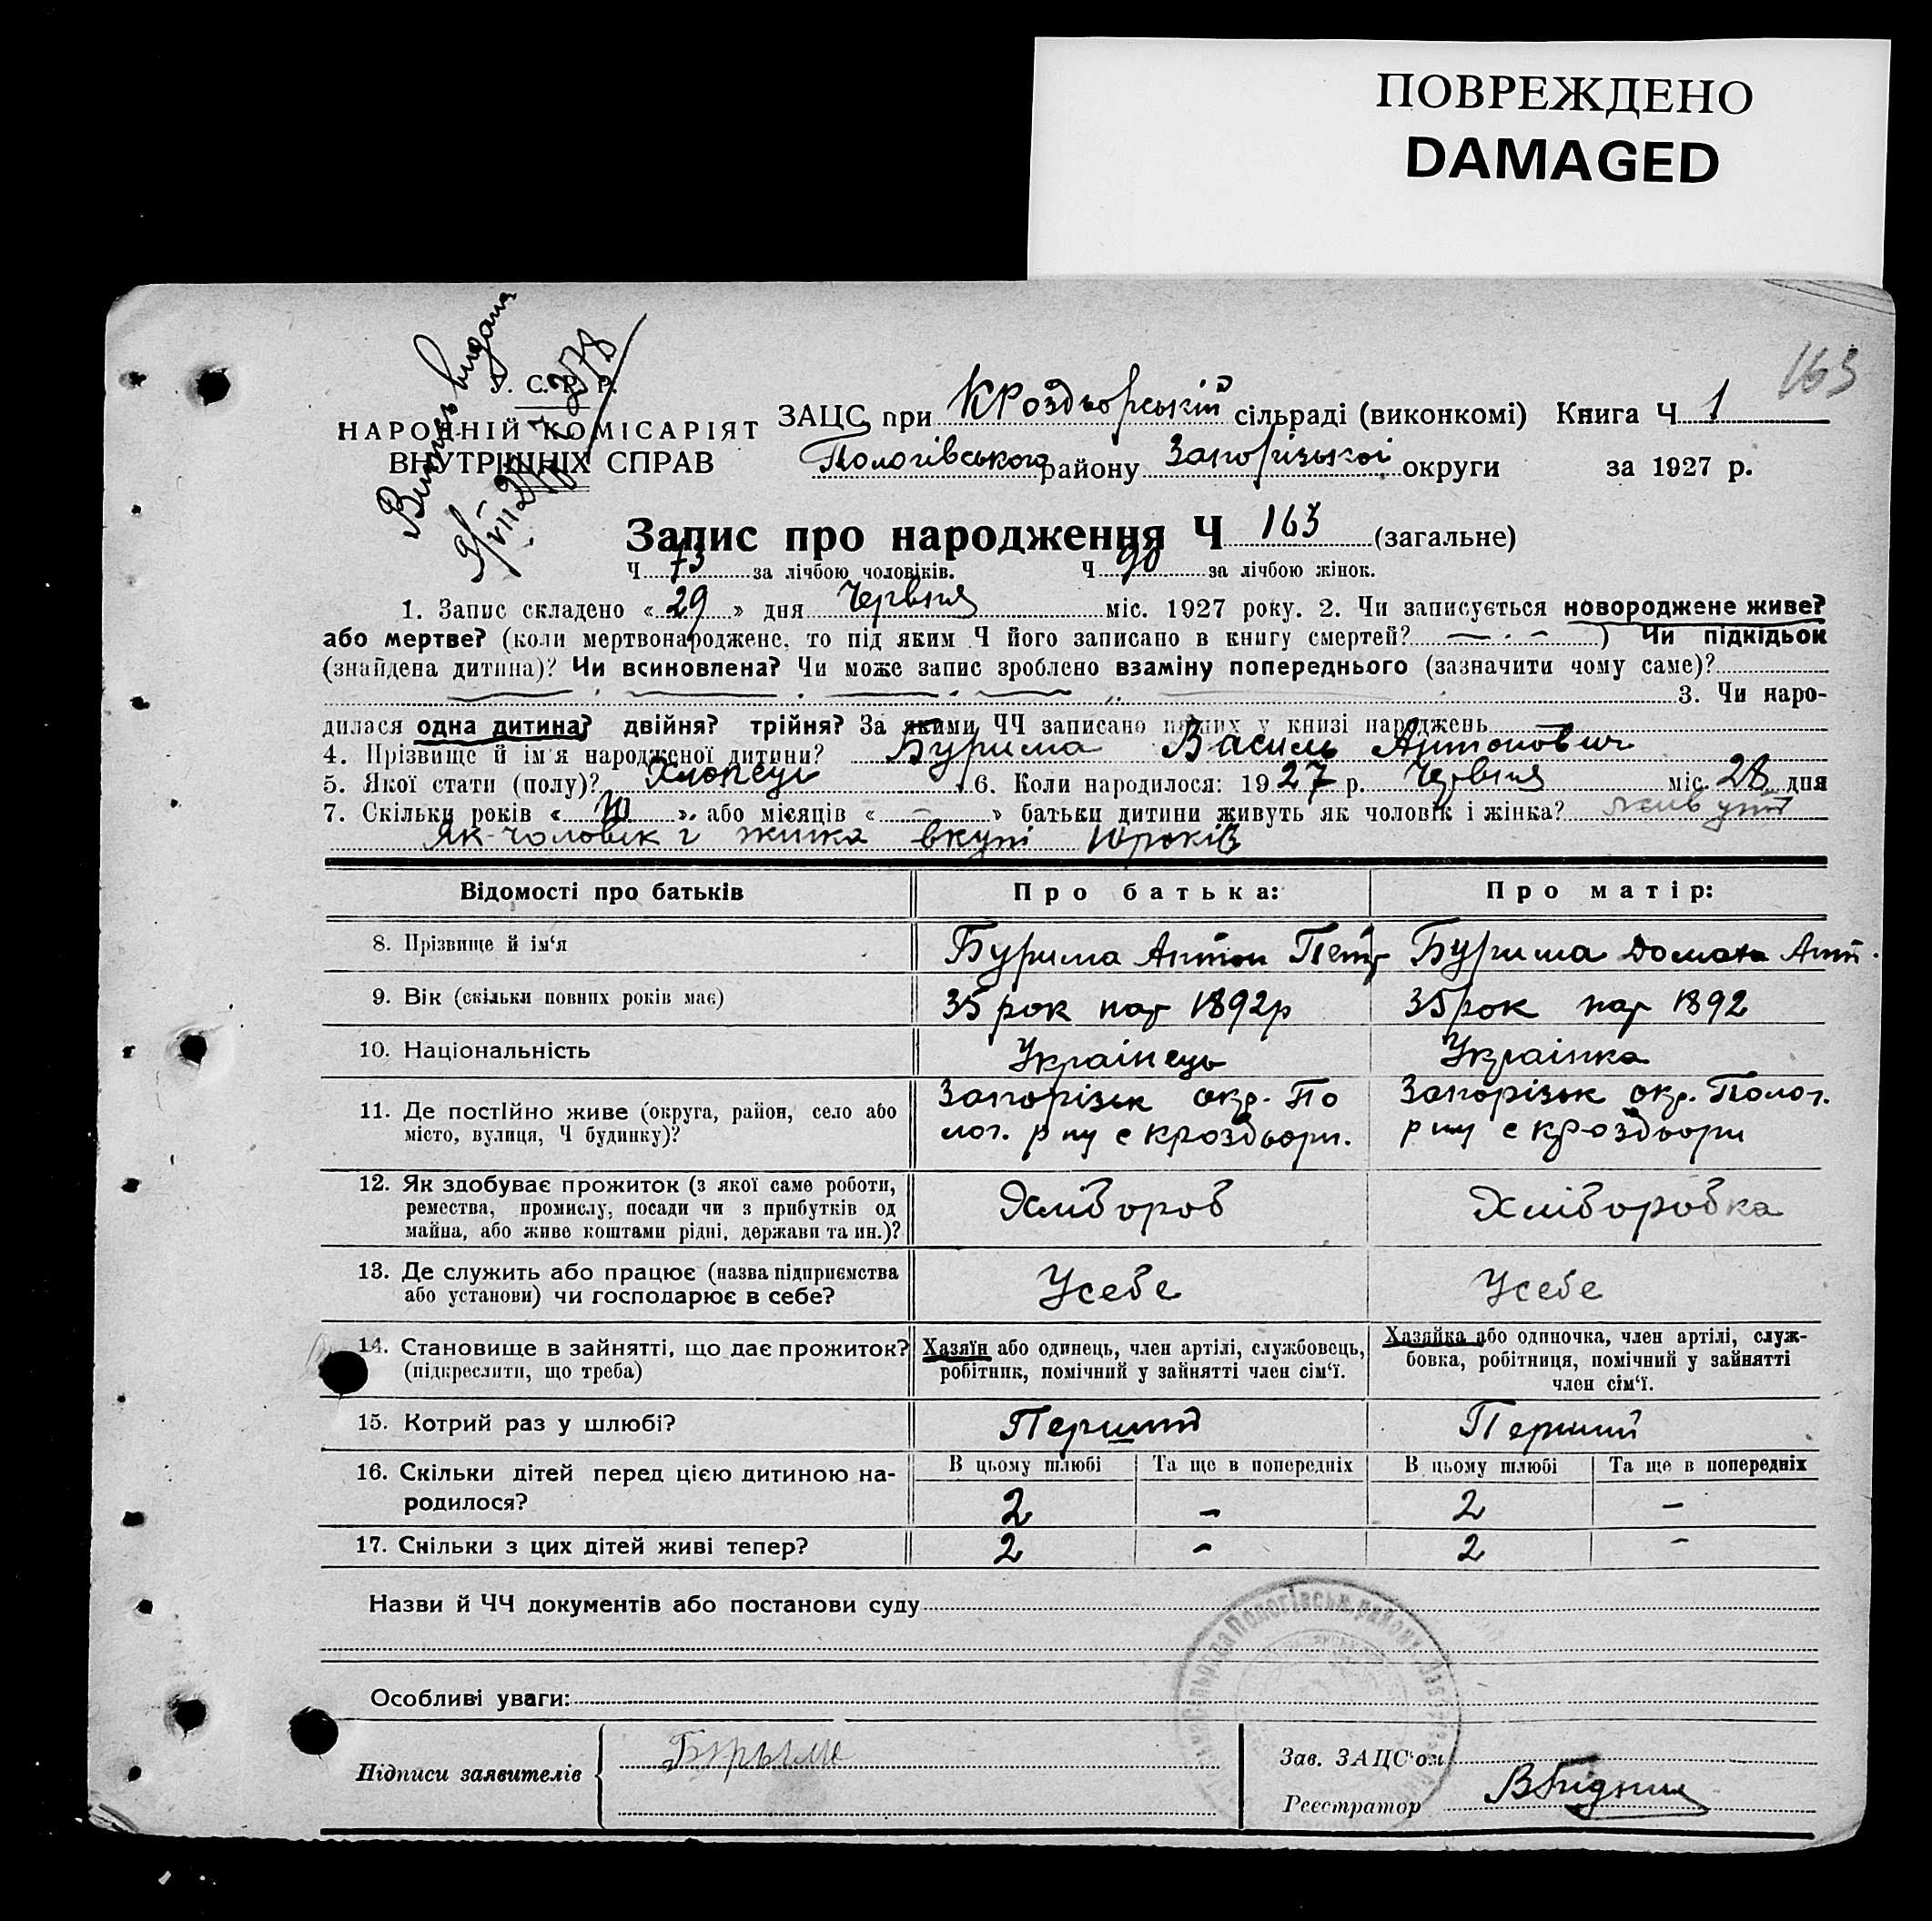 ПОВРЕЖДЕНО
DAMAGED
163
Витяг видана
С. Р. Р.
НАРОДНІЙ КОМІСАРІЯТ
ВНУТРІШНІХ СПРАВ
ЗАЦС при КРоздьорській сільраді (виконкомі) Книга Ч. 1
Пологівського району Запорізької округи за 1927 р.
Запис про народження Ч 163 (загальне)
Ч 73 за лічбою чоловіків. Ч 90 за лічбою жінок.
1. Запис складено «29» дня Червня міс. 1927 року. 2. Чи записується новороджене живе?
або мертве? (коли мертвонароджене, то під яким Ч його записано в книгу смертей? — . — ) Чи підкідьок
(знайдена дитина)? Чи всиновлена? Чи може запис зроблено взаміну попереднього (зазначити чому саме)?
3. Чи наро-
дилася одна дитина? двійня? трійня? За якими ЧЧ записано інших у книзі народжень
4. Прізвище й ім'я народженої дитини? Бурима Василь Антонович
5. Якої стати (полу)? Хлопець 6. Коли народилося: 1927 р. Червня міс. 28 дня
7. Скільки років «10» або місяців « — » батьки дитини живуть як чоловік і жінка? живуть
Як чоловік і жинка вкупі 10 років
Відомості про батьків Про батька: Про матір:
8. Прізвище й ім'я Бурима Антон Петр Бурима Домаха Ант.
9. Вік (скільки повних років має) 35 рок нар 1892р 35 рок нар 1892
10. Національність Українець Українка
11. Де постійно живе (округа, район, село або Запорізьк окр. По Запорізьк окр. Полог.
місто, вулиця, Ч будинку)? лог. р ну с кроздьори. р ну с кроздьори
12. Як здобуває прожиток (з якої саме роботи,
ремества, промислу, посади чи з прибутків од Хліборов Хліборовка
майна, або живе коштами рідні, держави та ин.)?
13. Де служить або працює (назва підприємства
або установи) чи господарює в себе? Усебе Усебе
14. Становище в зайнятті, що дає прожиток? Хазяїн або одинець, член артілі, службовець, Хазяйка або одиночка, член артілі, служ-
(підкреслити, що треба) робітник, помічний у зайнятті член сім'ї. бовка, робітниця, помічний у зайнятті
член сім'ї.
15. Котрий раз у шлюбі? Перший Перший
16. Скільки дітей перед цією дитиною на- В цьому шлюбі Та ще в попередніх В цьому шлюбі Та ще в попередніх
родилося? 2 - 2 -
17. Скільки з цих дітей живі тепер? 2 - 2 -
Назви й ЧЧ документів або постанови суду
Особливі уваги:
Підписи заявителів Бурыма Зав. ЗАЦС'ом
Реєстратор